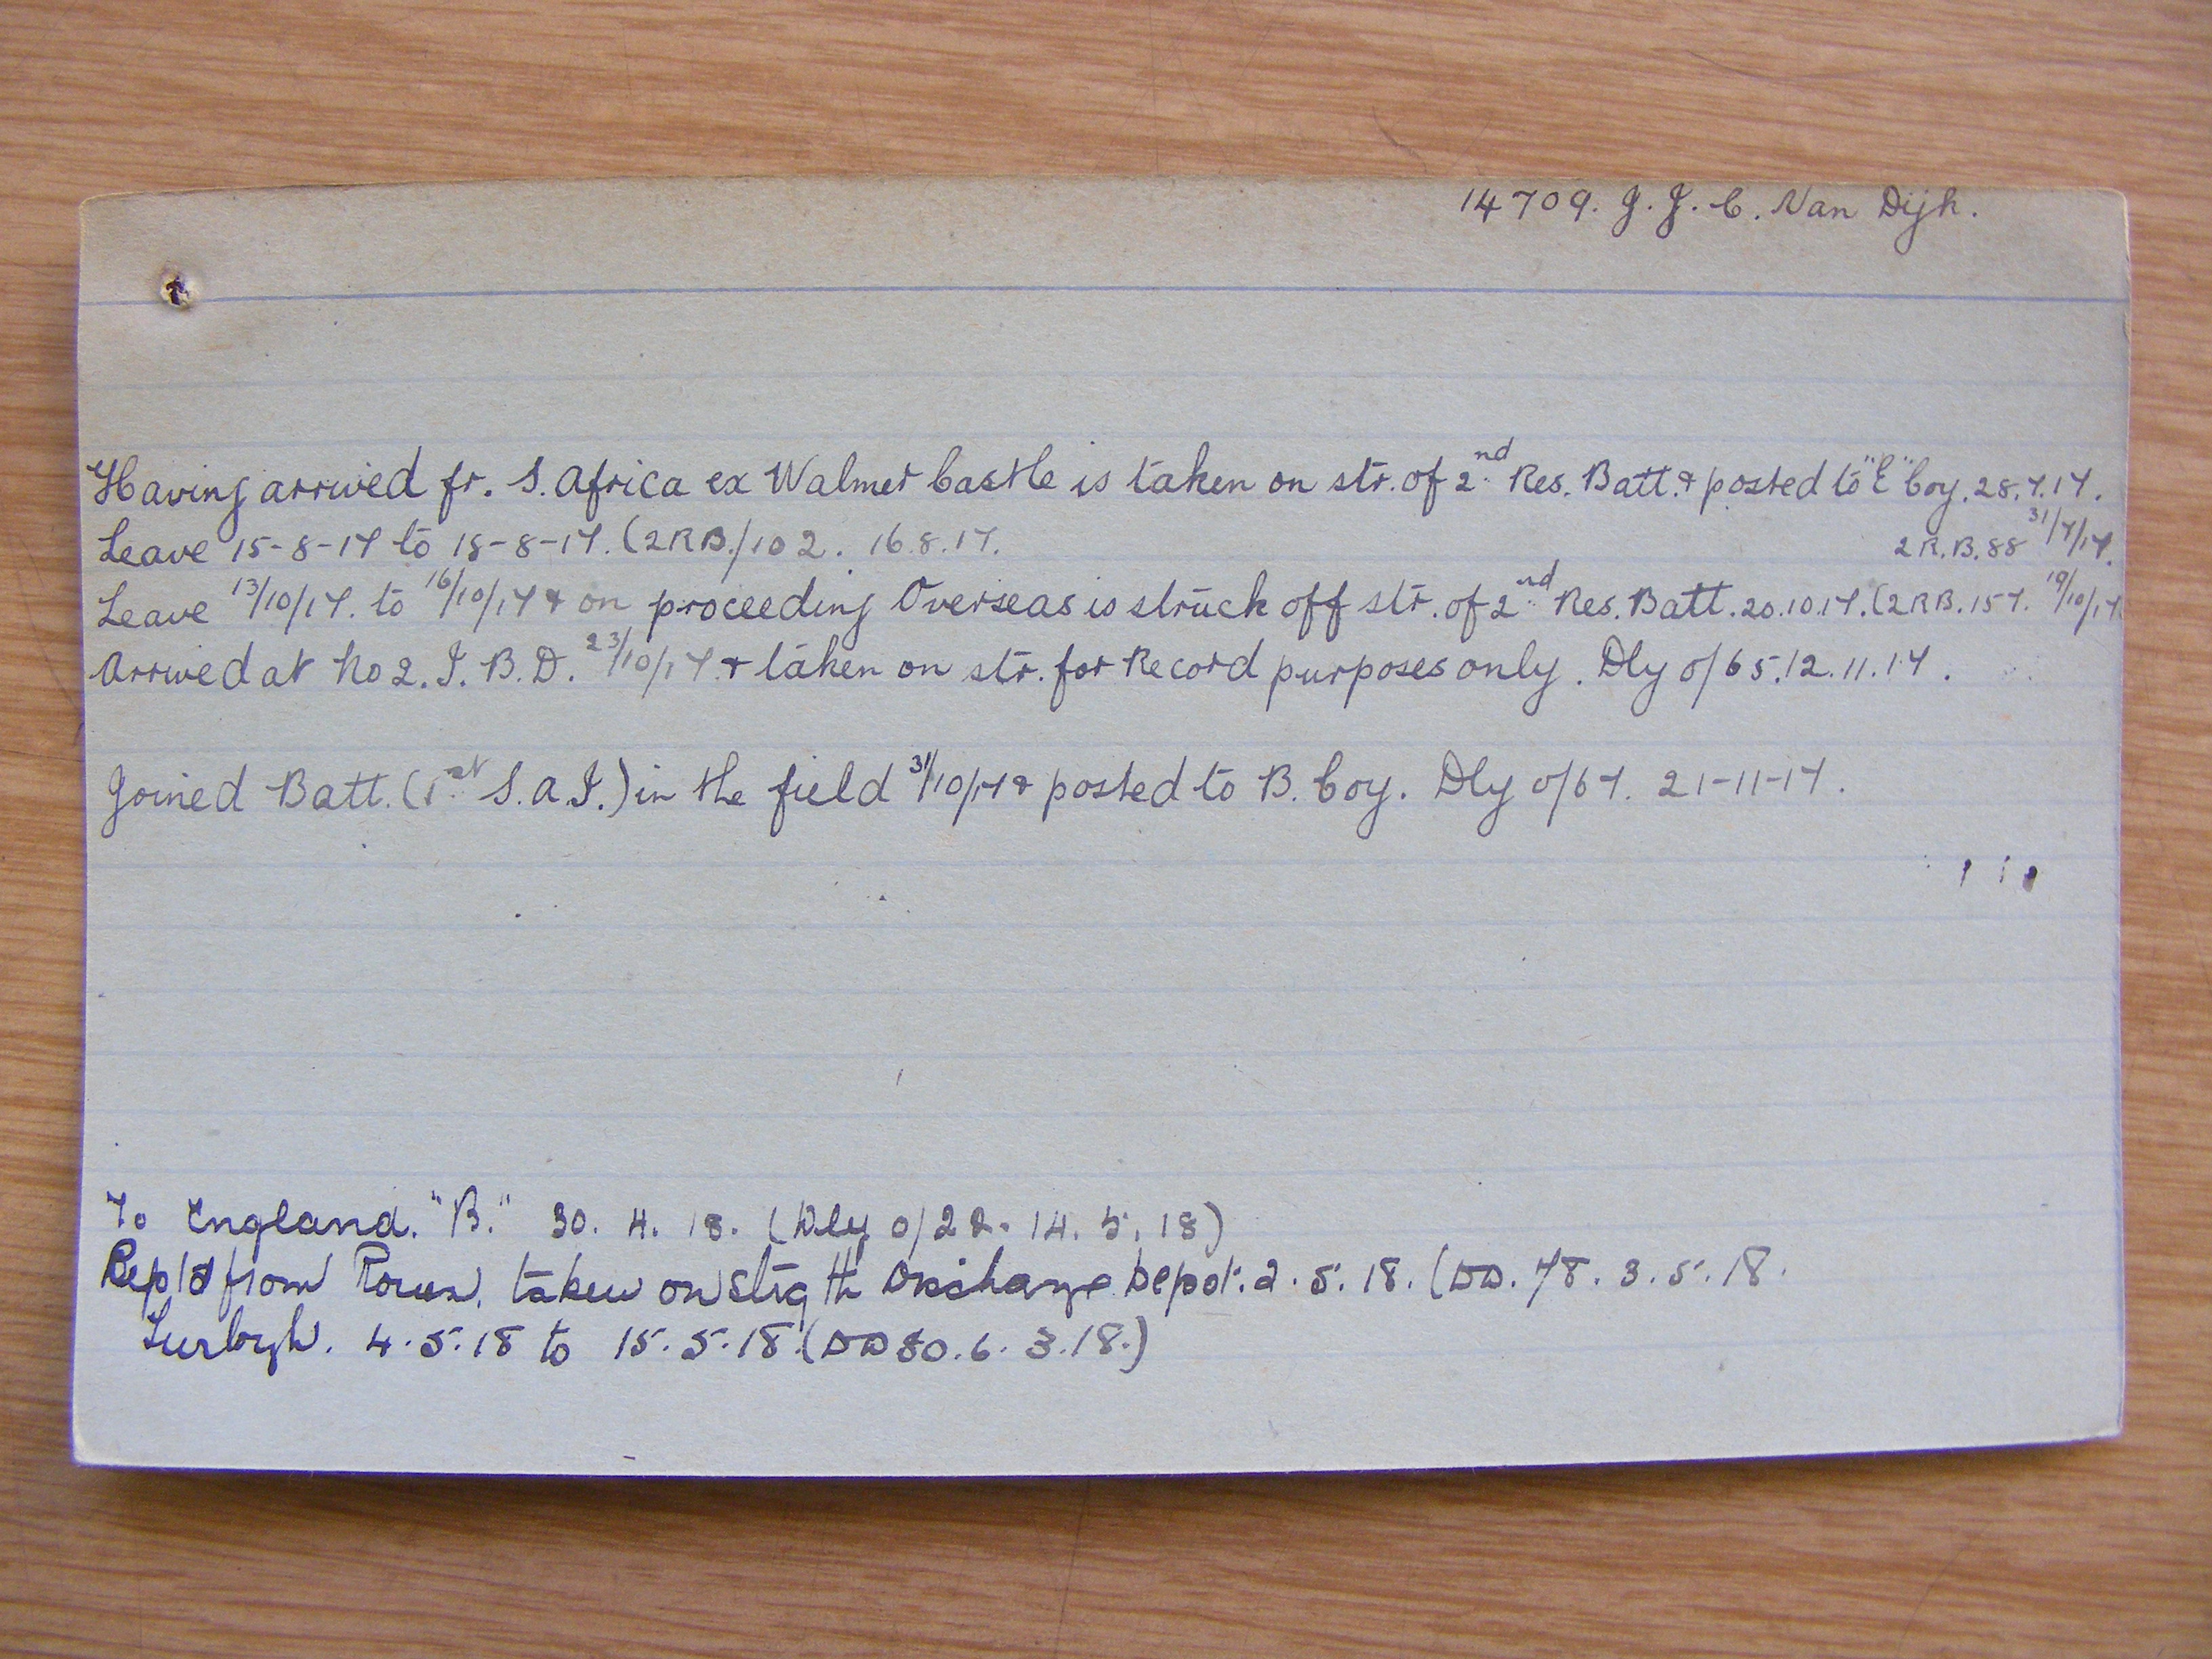 14709. J. J. C. Van Dijk.
Having arrived fr. S. Africa ex Walmer Castle is taken on str. of 2nd Res. Batt. & posted to "E" Coy. 28.7.17.
Leave 15-8-17 to 18-8-17. (2RB./102. 16.8.17.
2 R.B. 88 31/7/17.
Leave 13/10/17. to 16/10/17 & on proceeding Overseas is struck off str. of 2nd Res. Batt. 20.10.17. (2RB. 157. 19/10/17
Arrived at No 2. I. B. D. 23/10/17. & taken on str. for Record purposes only. Dly o/65. 12.11.17.
Joined Batt. (1st S.A.I.) in the field 31/10/17 & posted to B. Coy. Dly o/67. 21-11-17.
To England. "B." 30. 4. 18. (Dly o/22. 14. 5. 18)
from Rouen. taken on Discharge Depot. 2. 5. 18. (DD. 78. 3. 5. 18.
Furlogh. 4. 5. 18 to 15. 5. 18. (DD 80. 6. 3. 18.)